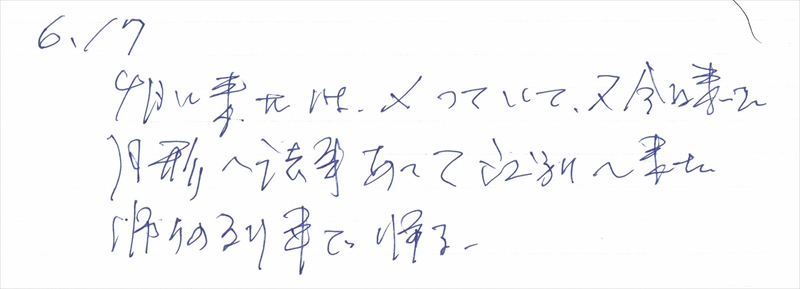 6.17
4月に来た時は、〆っていて、又今日来た
月形へ法事あって江別へ来た
帰りの列車で帰る。